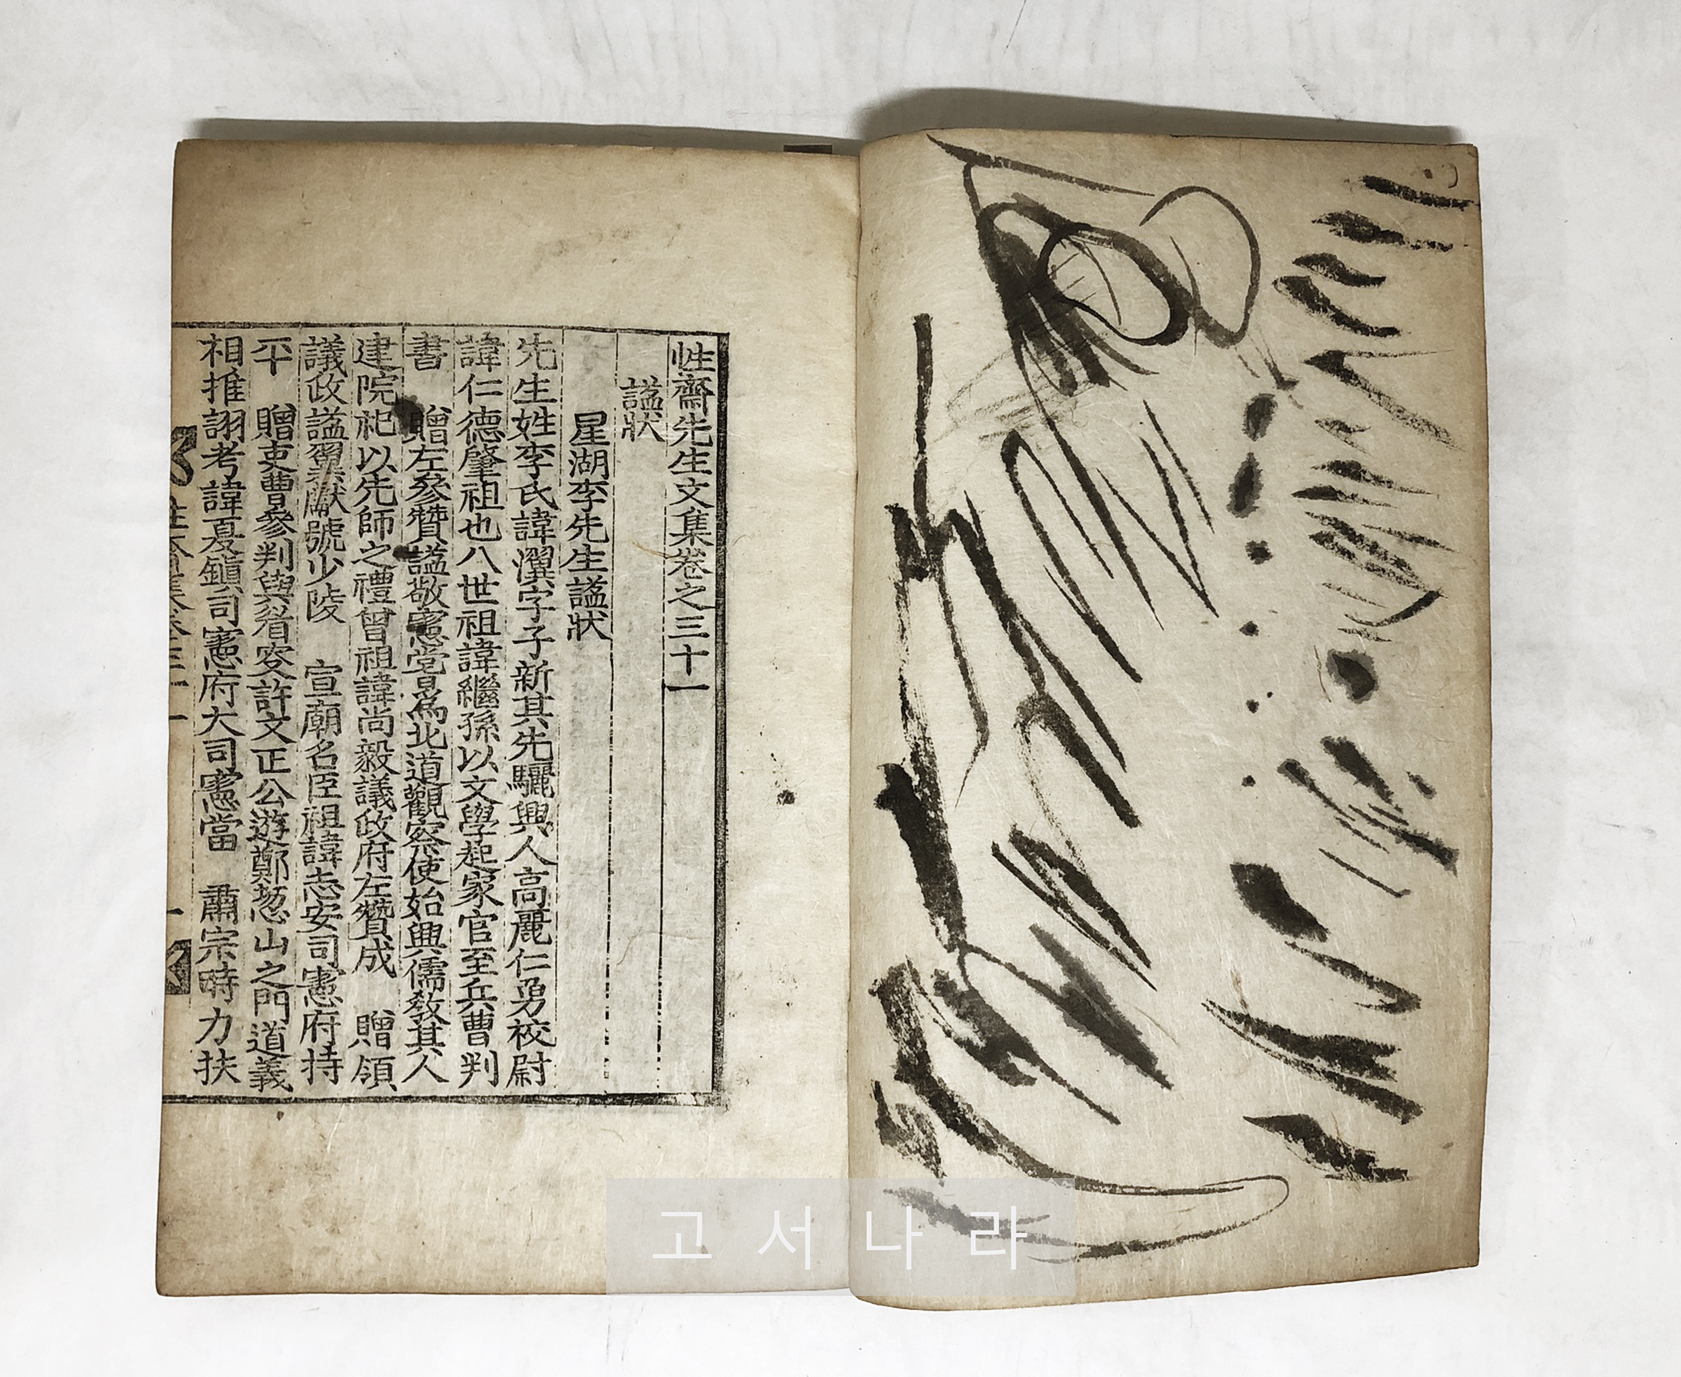 性齋先生文集卷之三十一
諡狀
星湖李先生諡狀
先生姓李氏諱瀷字子新其先驪興人高麗仁勇校尉
諱仁德肇祖也八世祖諱繼孫以文學起家官至兵曹判
書 贈左參贊諡敬憲嘗爲北道觀察使始興儒敎其人
建院祀以先師之禮曾祖諱尚毅議政府左贊成 贈領
議政諡翼獻號少陵 宣廟名臣祖諱志安司憲府持
平 贈吏曹參判與眉容許文正公遊鄭愁山之門道義
相推詡考諱夏鎭司憲府大司憲當 肅宗時力扶
고서나라